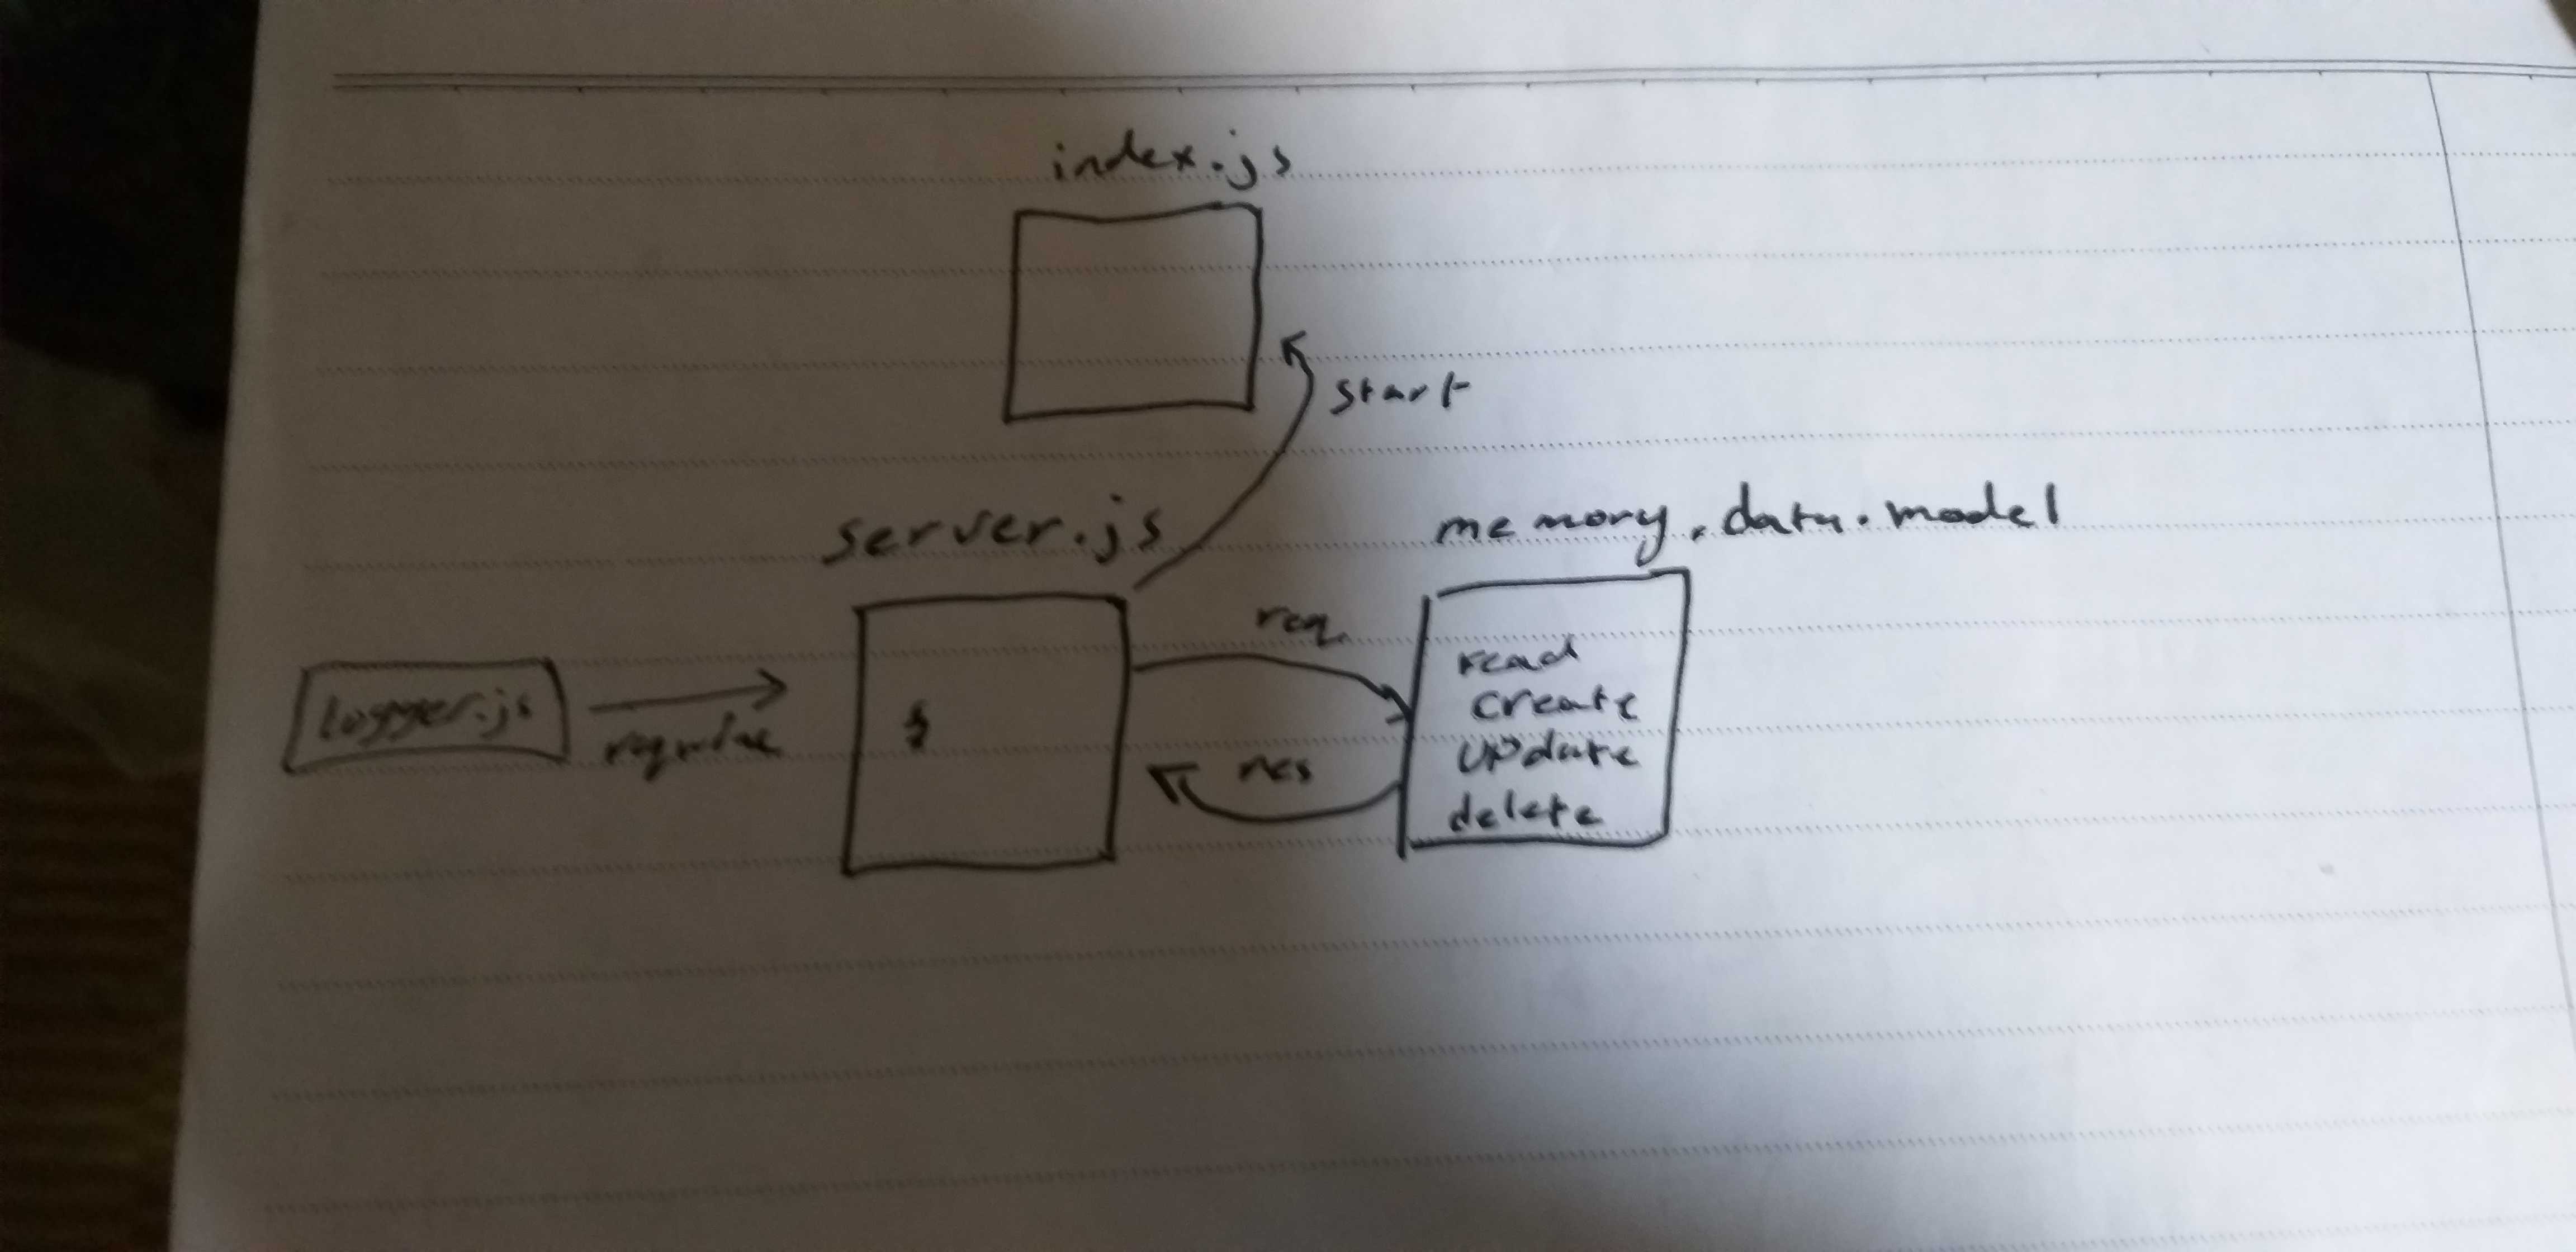 index.js
start
server.js
memory.data.model
req
logger.js
require
res
read
create
update
delete